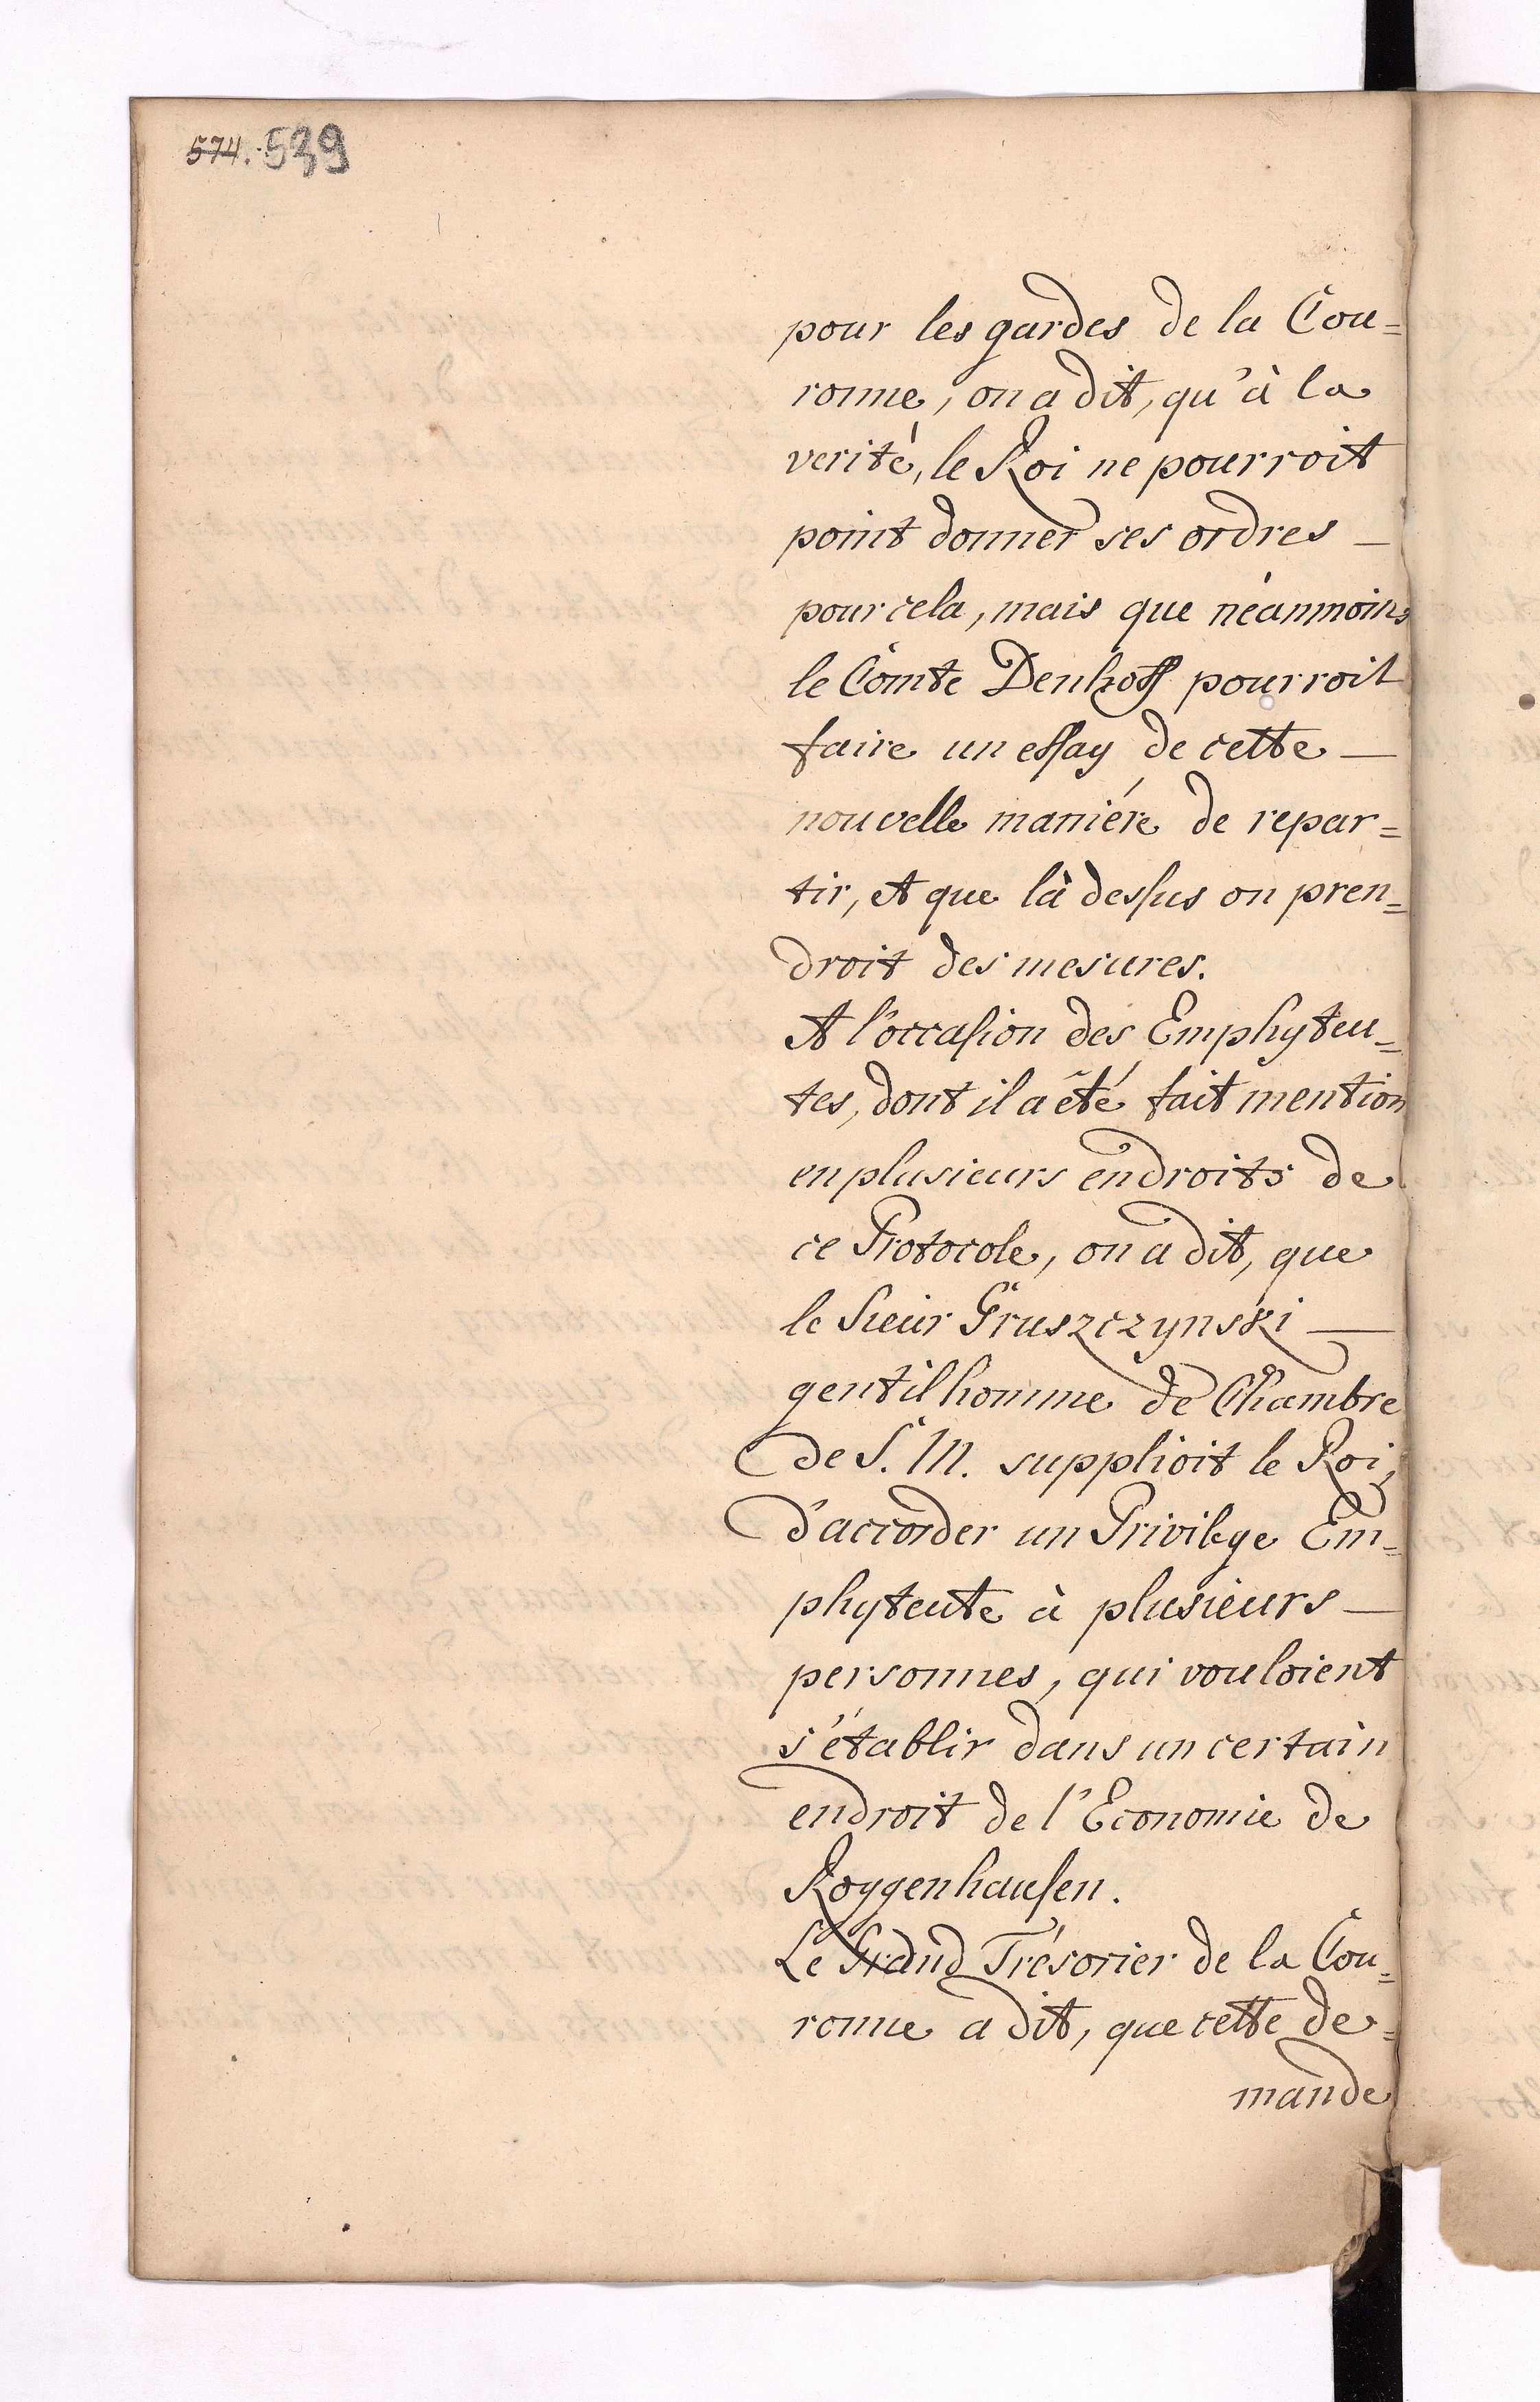 574. 539
pour les gardes de la Cou=
ronne, on a dit, qu'à la
verité, le Roi ne pourroit
point donner ses ordres —
pour cela, mais que néanmoins
le Comte Denhoff pourroit
faire un essay de cette —
nouvelle maniére de repar=
tir, et que là dessus on pren=
droit des mesures.
A l'occasion des Emphyteu=
tes, dont il a été fait mention
en plusieurs endroits de
ce Protocole, on a dit, que
le Sieur Gruszczynski —
gentilhomme de Chambre
de S. M. supplioit le Roi,
d'accorder un Privilege Em=
phyteute à plusieurs —
personnes, qui vouloient
s'établir dans un certain
endroit de l'Economie de
Roggenhausen.
Le Grand Trésorier de la Cou=
ronne a dit, que cette de=
mande